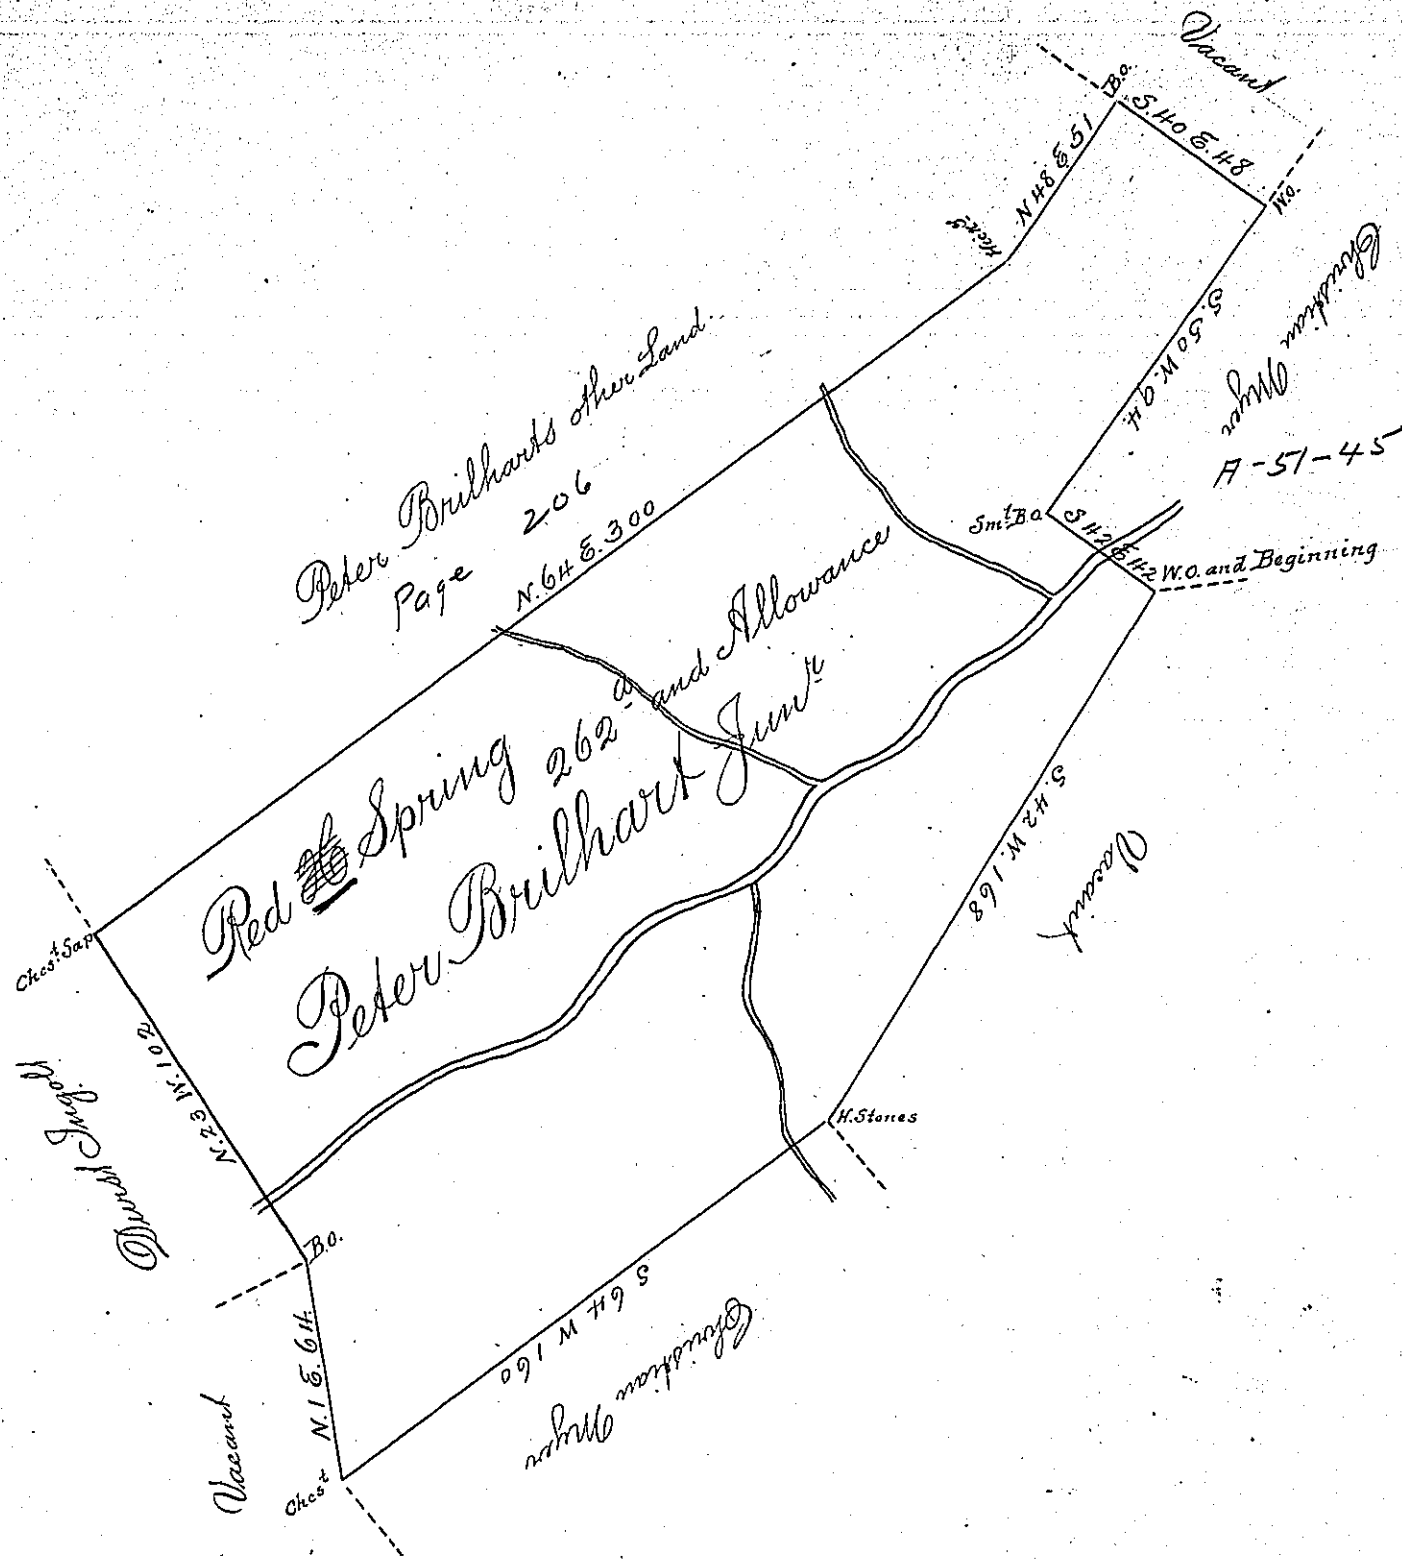 Vacant
B.O.
S. 40 E. 48
W.O.
N 48 E 51
Hick.y
Christian Myer
A-51-45
S. 50 W. 94.
Peter Brilharts other Land
Page 206
N. 64 E. 300
Sm.t B.O.
S 42 E 42
W.O. and Beginning
Red Spring 262 a and Allowance
Peter Brilhart Junr
S. 42 W. 168
Vacant
Chest. Sap
N. 23 W. 102
David Ingall
H. Stones
B.O.
S 64 W 160
Christian Myer
N. 1 E. 64.
Vacant
Chest